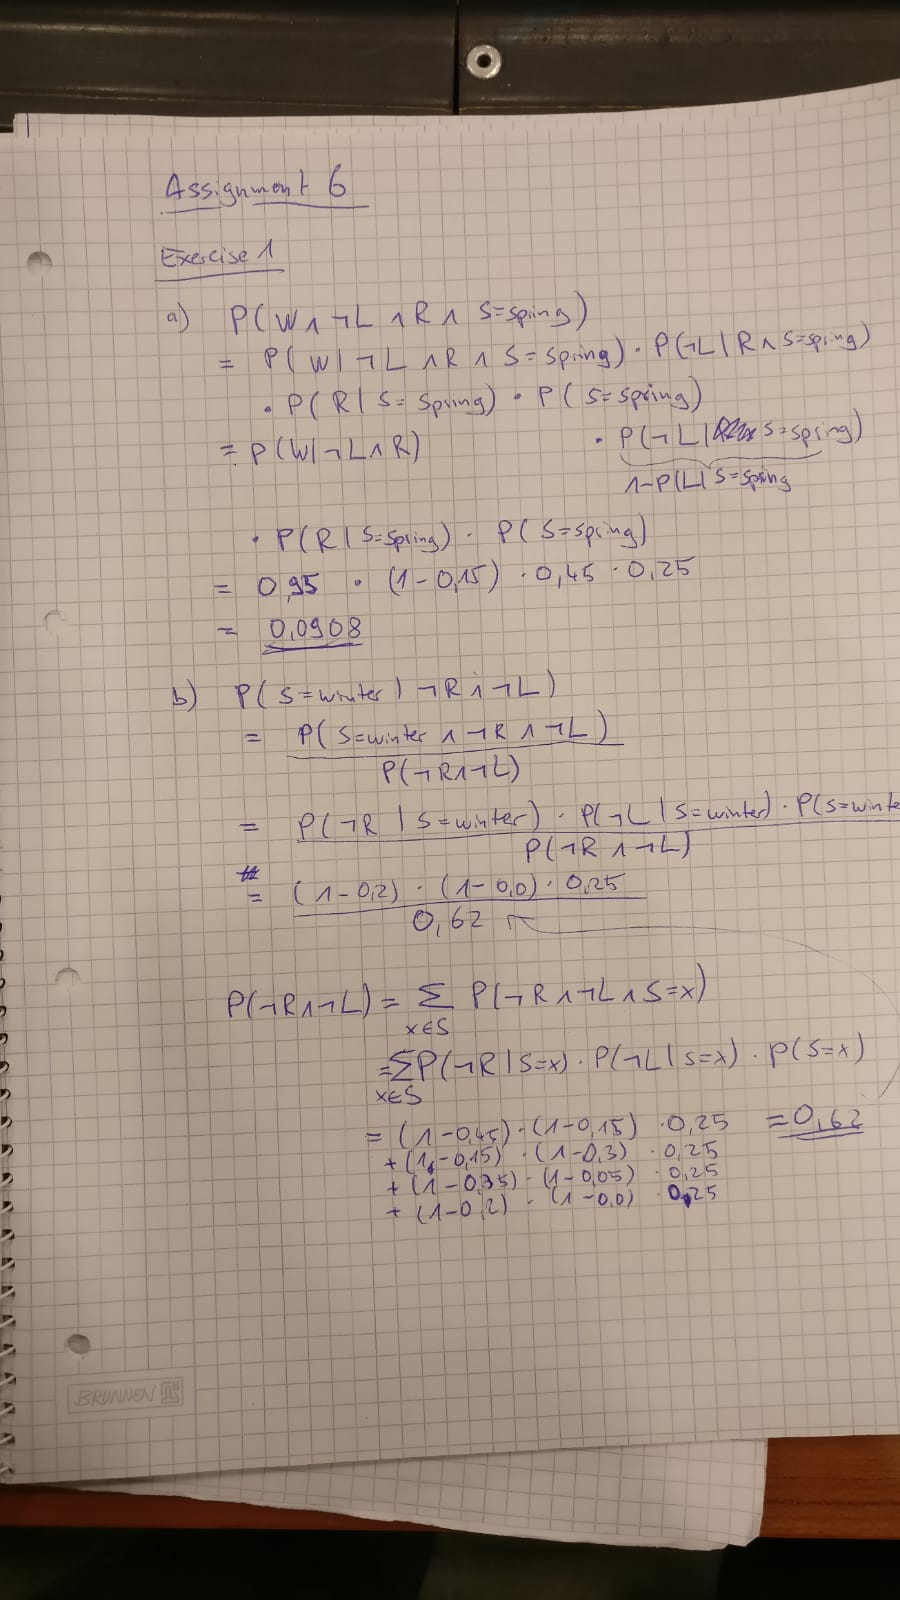 Assignment 6
Exercise 1
a) P(W ∧ ¬L ∧ R ∧ S=spring)
= P(W | ¬L ∧ R ∧ S=spring) · P(¬L | R ∧ S=spring)
· P(R | S=Spring) · P(S=spring)
= P(W | ¬L ∧ R) · P(¬L | S=spring)
1-P(L | S=spring
· P(R | S=Spring) · P(S=spring)
= 0,95 · (1-0,15) · 0,45 · 0,25
= 0,0908
b) P(S=winter | ¬R ∧ ¬L)
= P(S=winter ∧ ¬R ∧ ¬L)
P(¬R ∧ ¬L)
= P(¬R | S=winter) · P(¬L | S=winter) · P(S=winte
P(¬R ∧ ¬L)
= (1-0,2) · (1-0,0) · 0,25
0,62
P(¬R ∧ ¬L) = Σ P(¬R ∧ ¬L ∧ S=x)
x∈S
= Σ P(¬R | S=x) · P(¬L | S=x) · P(S=x)
x∈S
= (1-0,45) · (1-0,15) · 0,25 = 0,62
+ (1-0,15) · (1-0,3) · 0,25
+ (1-0,35) · (1-0,05) · 0,25
+ (1-0,2) · (1-0,0) · 0,25
BRUNNEN